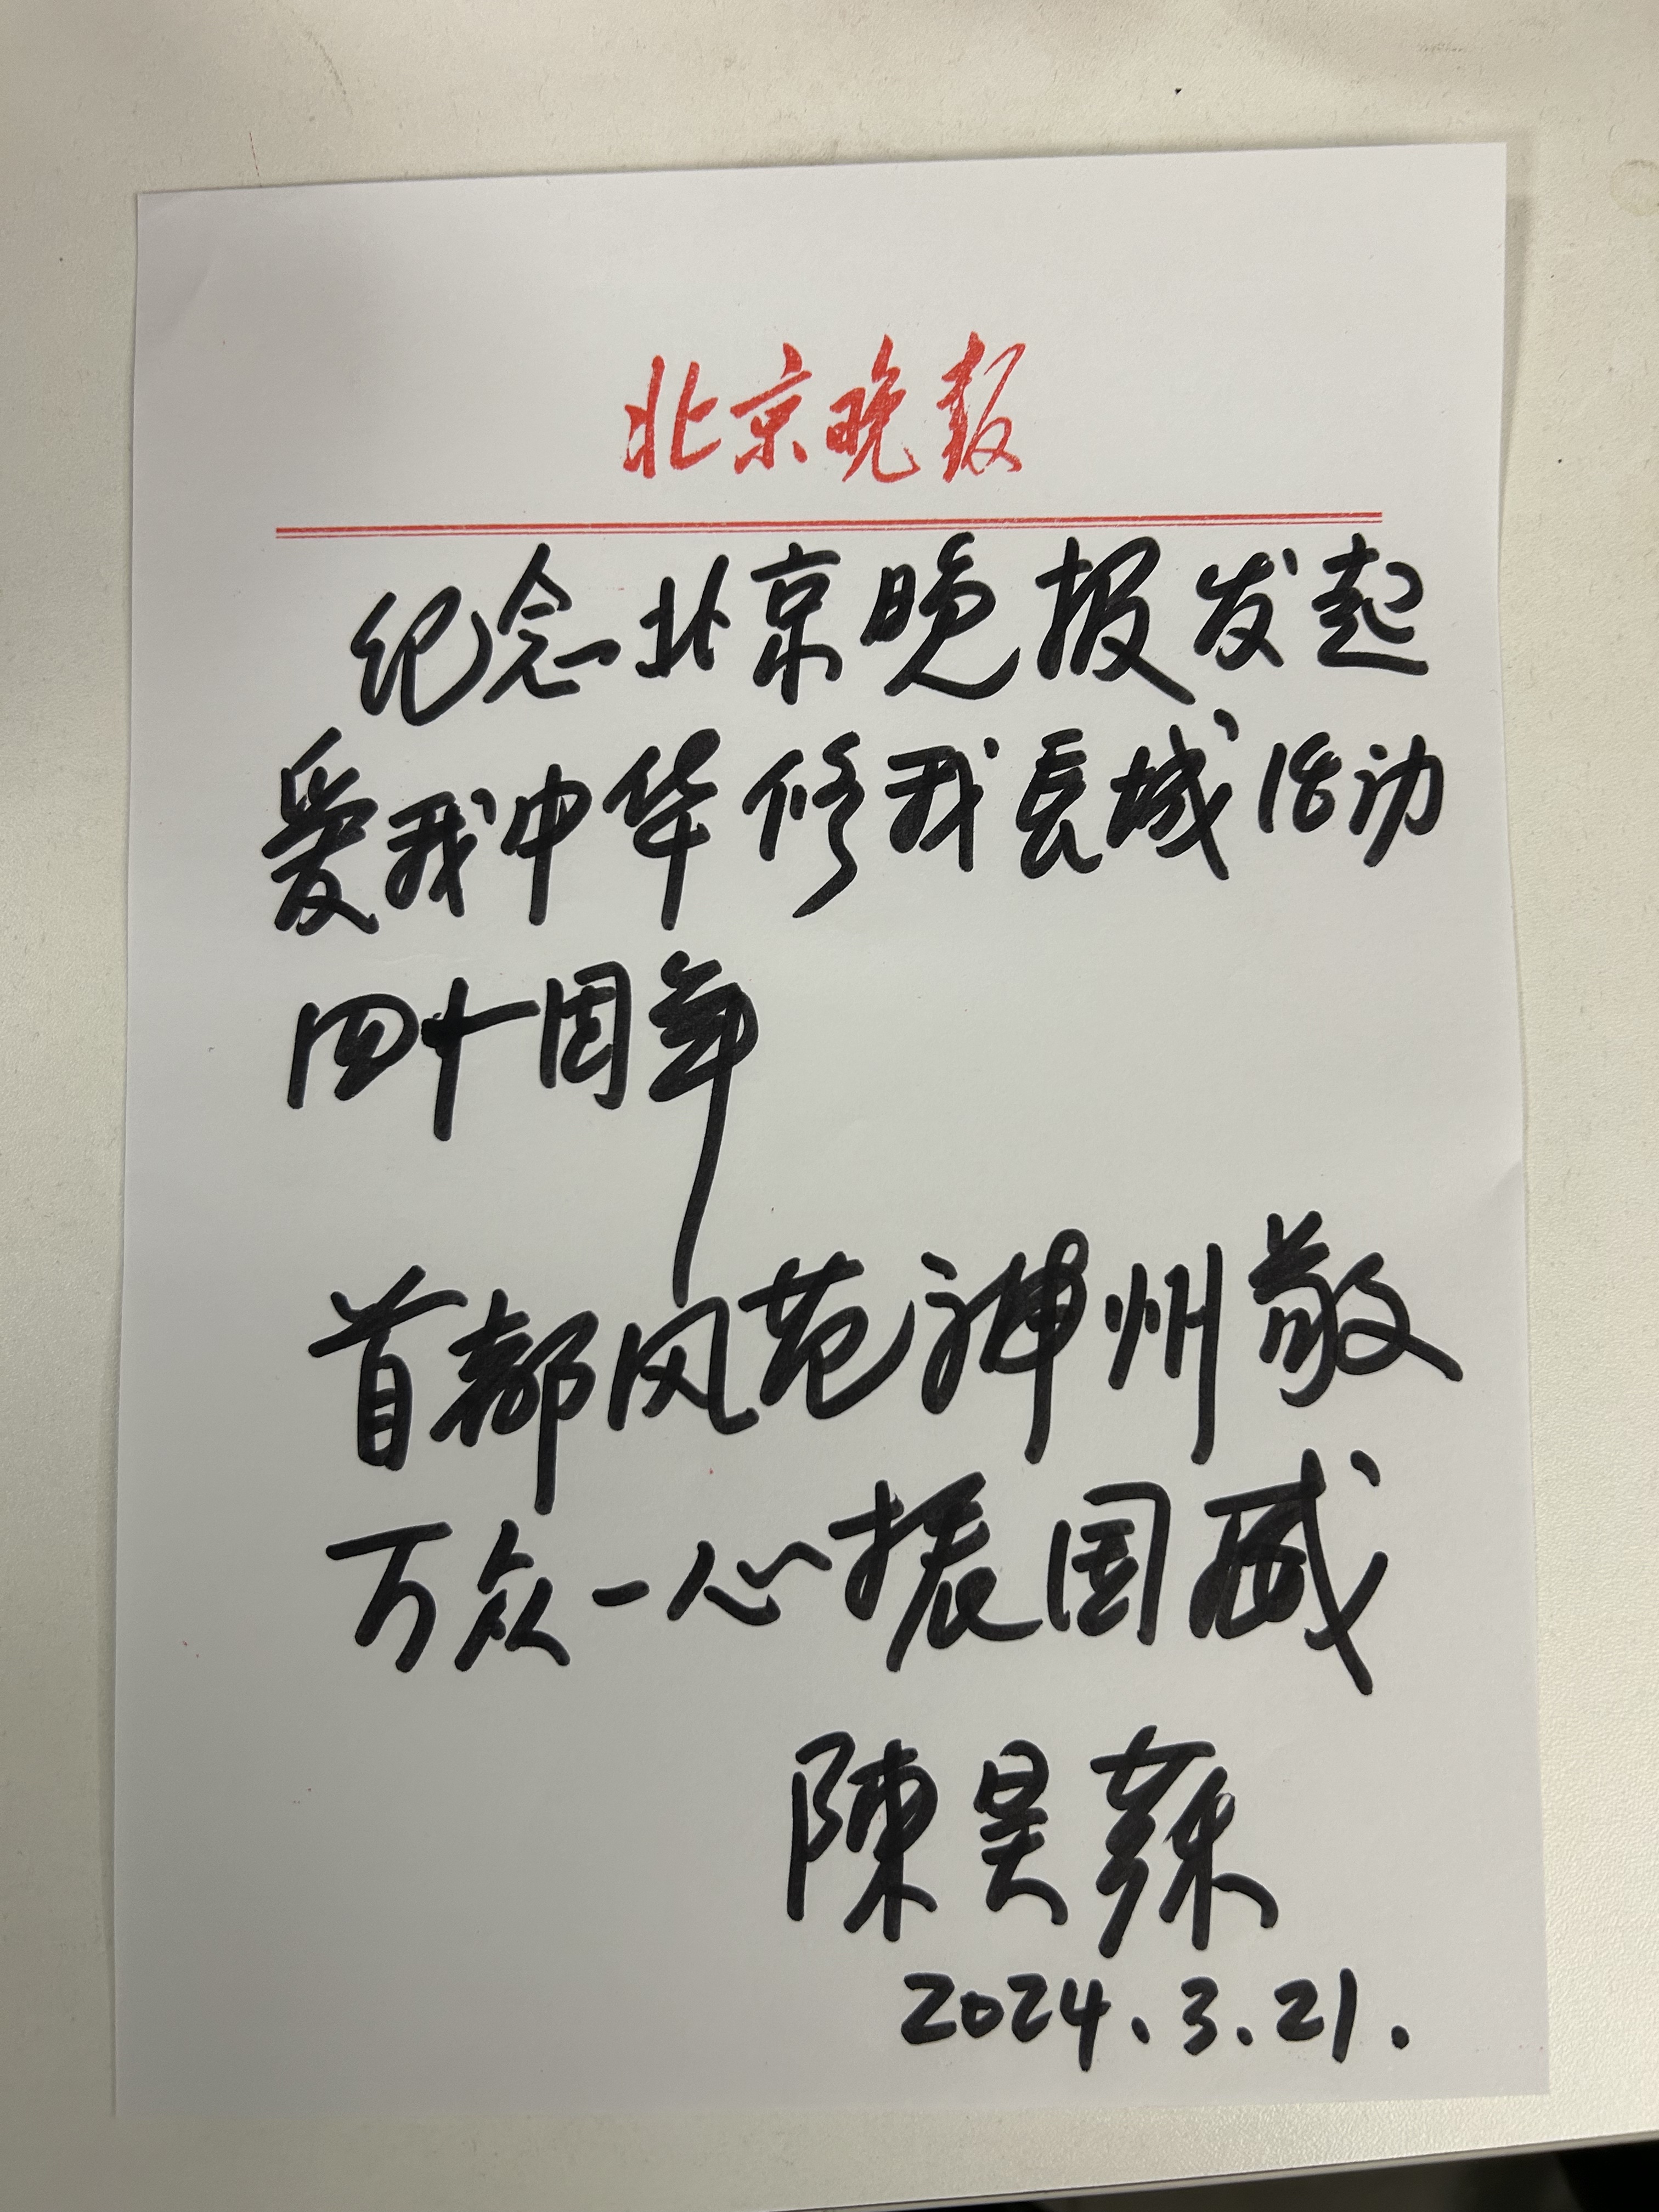 北京晚报
纪念北京晚报发起
爱我中华修我長城活动
四十周年
首都风范神州敬
万众一心振国威
陳昊蘇
2024.3.21.